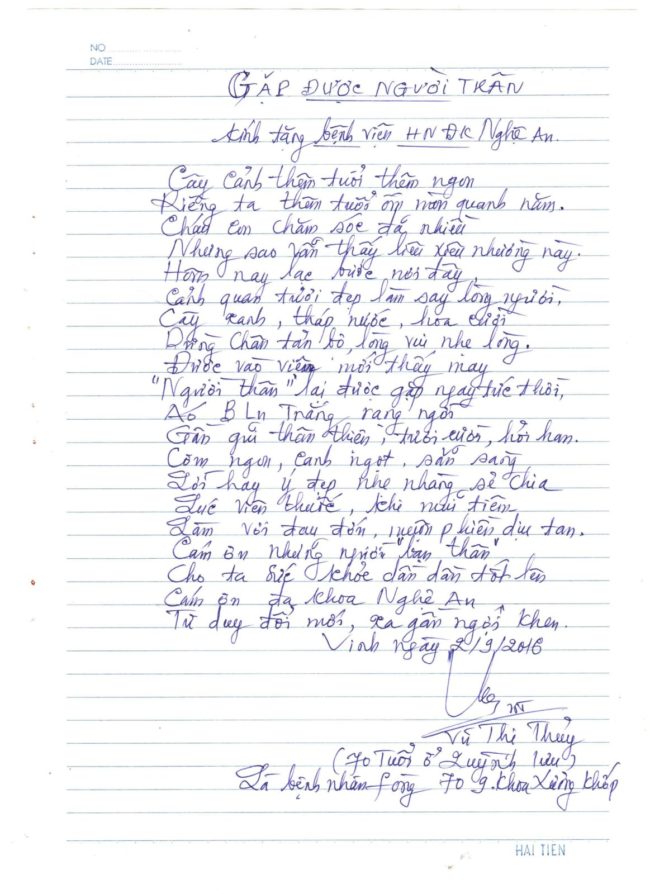 NO
DATE
GẶP ĐƯỢC NGƯỜI THÂN
Kính tặng bệnh viện HN ĐK Nghệ An.
Cây cảnh thêm tuổi thêm ngon
Riêng ta thêm tuổi ốm mòn quanh năm.
Cháu con chăm sóc đã nhiều
Nhưng sao vẫn thấy liêu xiêu nhường này.
Hôm nay lạc bước nơi đây,
Cảnh quan tươi đẹp làm say lòng người,
Cây xanh, tháp nước, hoa cười
Dừng chân tản bộ, lòng vui nhẹ lòng.
Được vào viện mới thấy may
"Người thân" lại được gặp ngay tức thời,
Áo BLu Trắng rạng ngời
Gần gũi thân thiện, tươi cười, hỏi han.
Cơm ngon, canh ngọt, sẵn sàng
Lời hay ý đẹp nhẹ nhàng sẻ chia
Lúc viên thuốc, khi mũi tiêm
Làm vơi đau đớn, muộn phiền dịu tan.
Cám ơn những người "bạn thân"
Cho ta sức khỏe dần dần tốt lên
Cám ơn đa khoa Nghệ An
Tư duy đổi mới, xa gần ngợi khen.
Vinh ngày 2/9/2016
Vũ Thị Thủy
(70 Tuổi ở Quỳnh Lưu)
Là bệnh nhân fòng 709. Khoa Xương Khớp
HẢI TIẾN